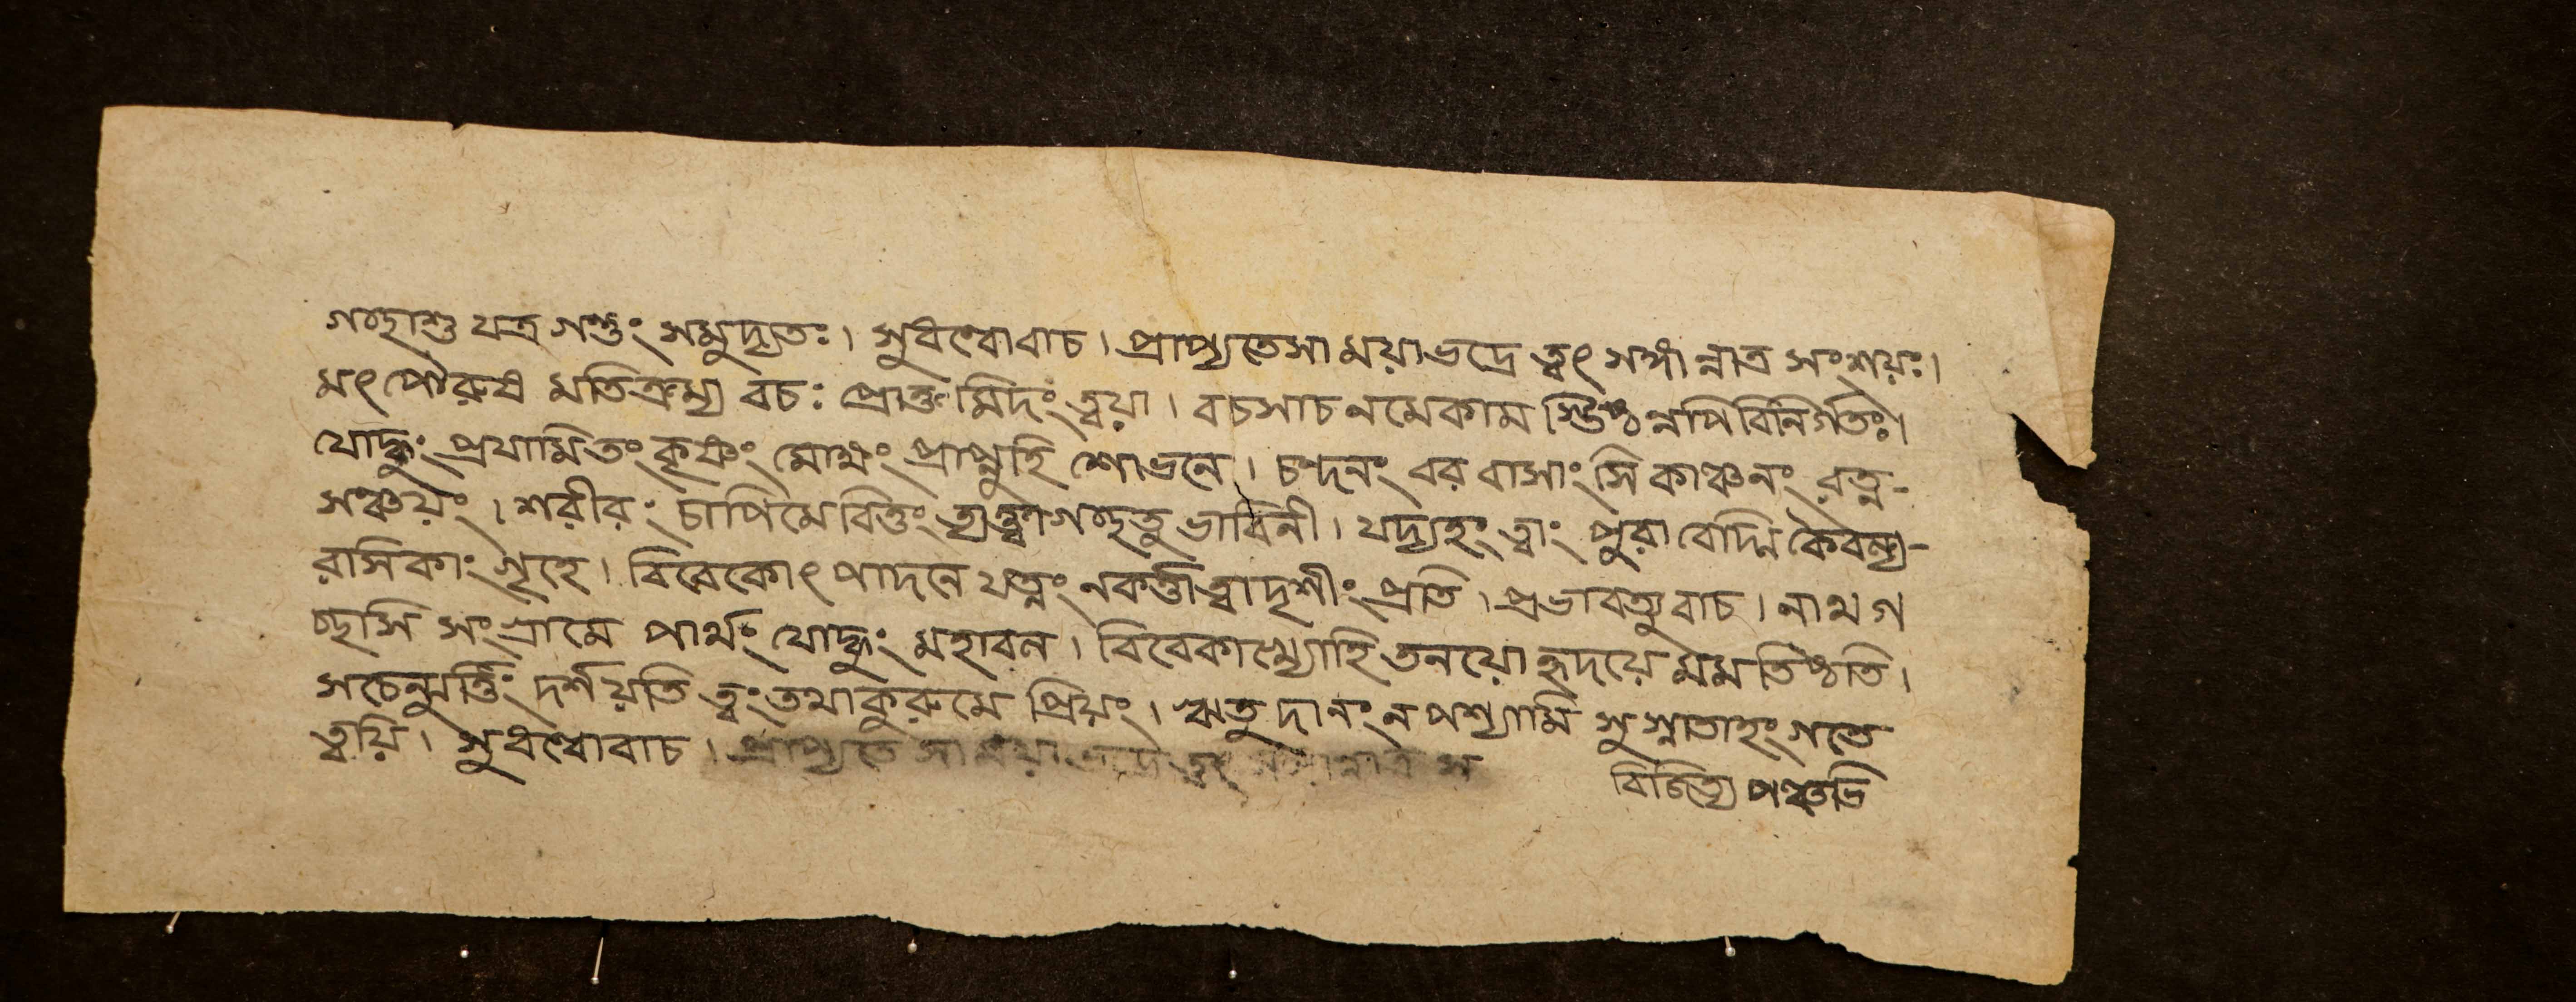 গচ্ছাশু যত্র গন্তুং সমুদ্যতঃ। সুধন্বোবাচ। প্রাপ্যতেসা ময়াভদ্রে ত্বৎ সঙ্গান্নাত্র সংশয়ঃ।
মৎ পৌরুষ মতিক্রম্য বচঃ প্রোক্ত মিদং ত্বয়া। বচসাচ নমেকাম স্তিষ্ঠ ন্নপি বিনির্গতঃ।
যোদ্ধুং প্রযামি তং কৃষ্ণং মোক্ষং প্রাপ্নুহি শোভনে। চন্দনং বর বাসাংসি কাঞ্চনং রত্ন-
সঞ্চয়ং। শরীরং চাপিমে বিত্তং ত্যক্ত্বা গচ্ছতু ভাবিনী। যদ্যহং ত্বাং পুরা বেদ্মি কৈবল্য-
রাসিকাং গৃহে। বিবেকোৎ পাদনে যত্নং নকর্ত্তা ত্বাদৃশীং প্রতি। প্রভাবত্যুবাচ। নাথ গ
চ্ছসি সংগ্রামে পার্থং যোদ্ধুং মহাবল। বিবেকাখ্যোহি তনয়ো হৃদয়ে মম তিষ্ঠতি।
সচেন্মুর্ত্তিং দর্শয়তি ত্বং তথা কুরু মে প্রিয়ং। ঋতু দানং ন পশ্যামি সুস্নাতাহং গতে
ত্বয়ি। সুধন্বোবাচ। প্রাপ্যতে সা ময়া ভদ্রে ত্বৎ সঙ্গান্নাত্র স
বিজিত্য পঞ্চভি